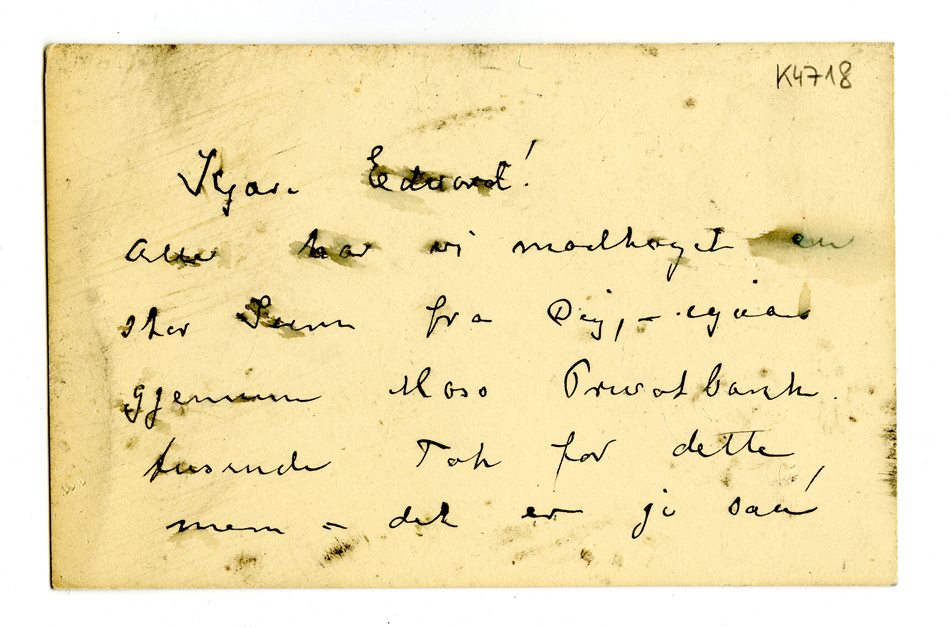 K4718
Kjære Edvard!
Atter har vi modtaget en
stor Sum fra Dig, – igjen
gjennem Moss Privatbank.
tusende Tak for dette
men – det er jo så